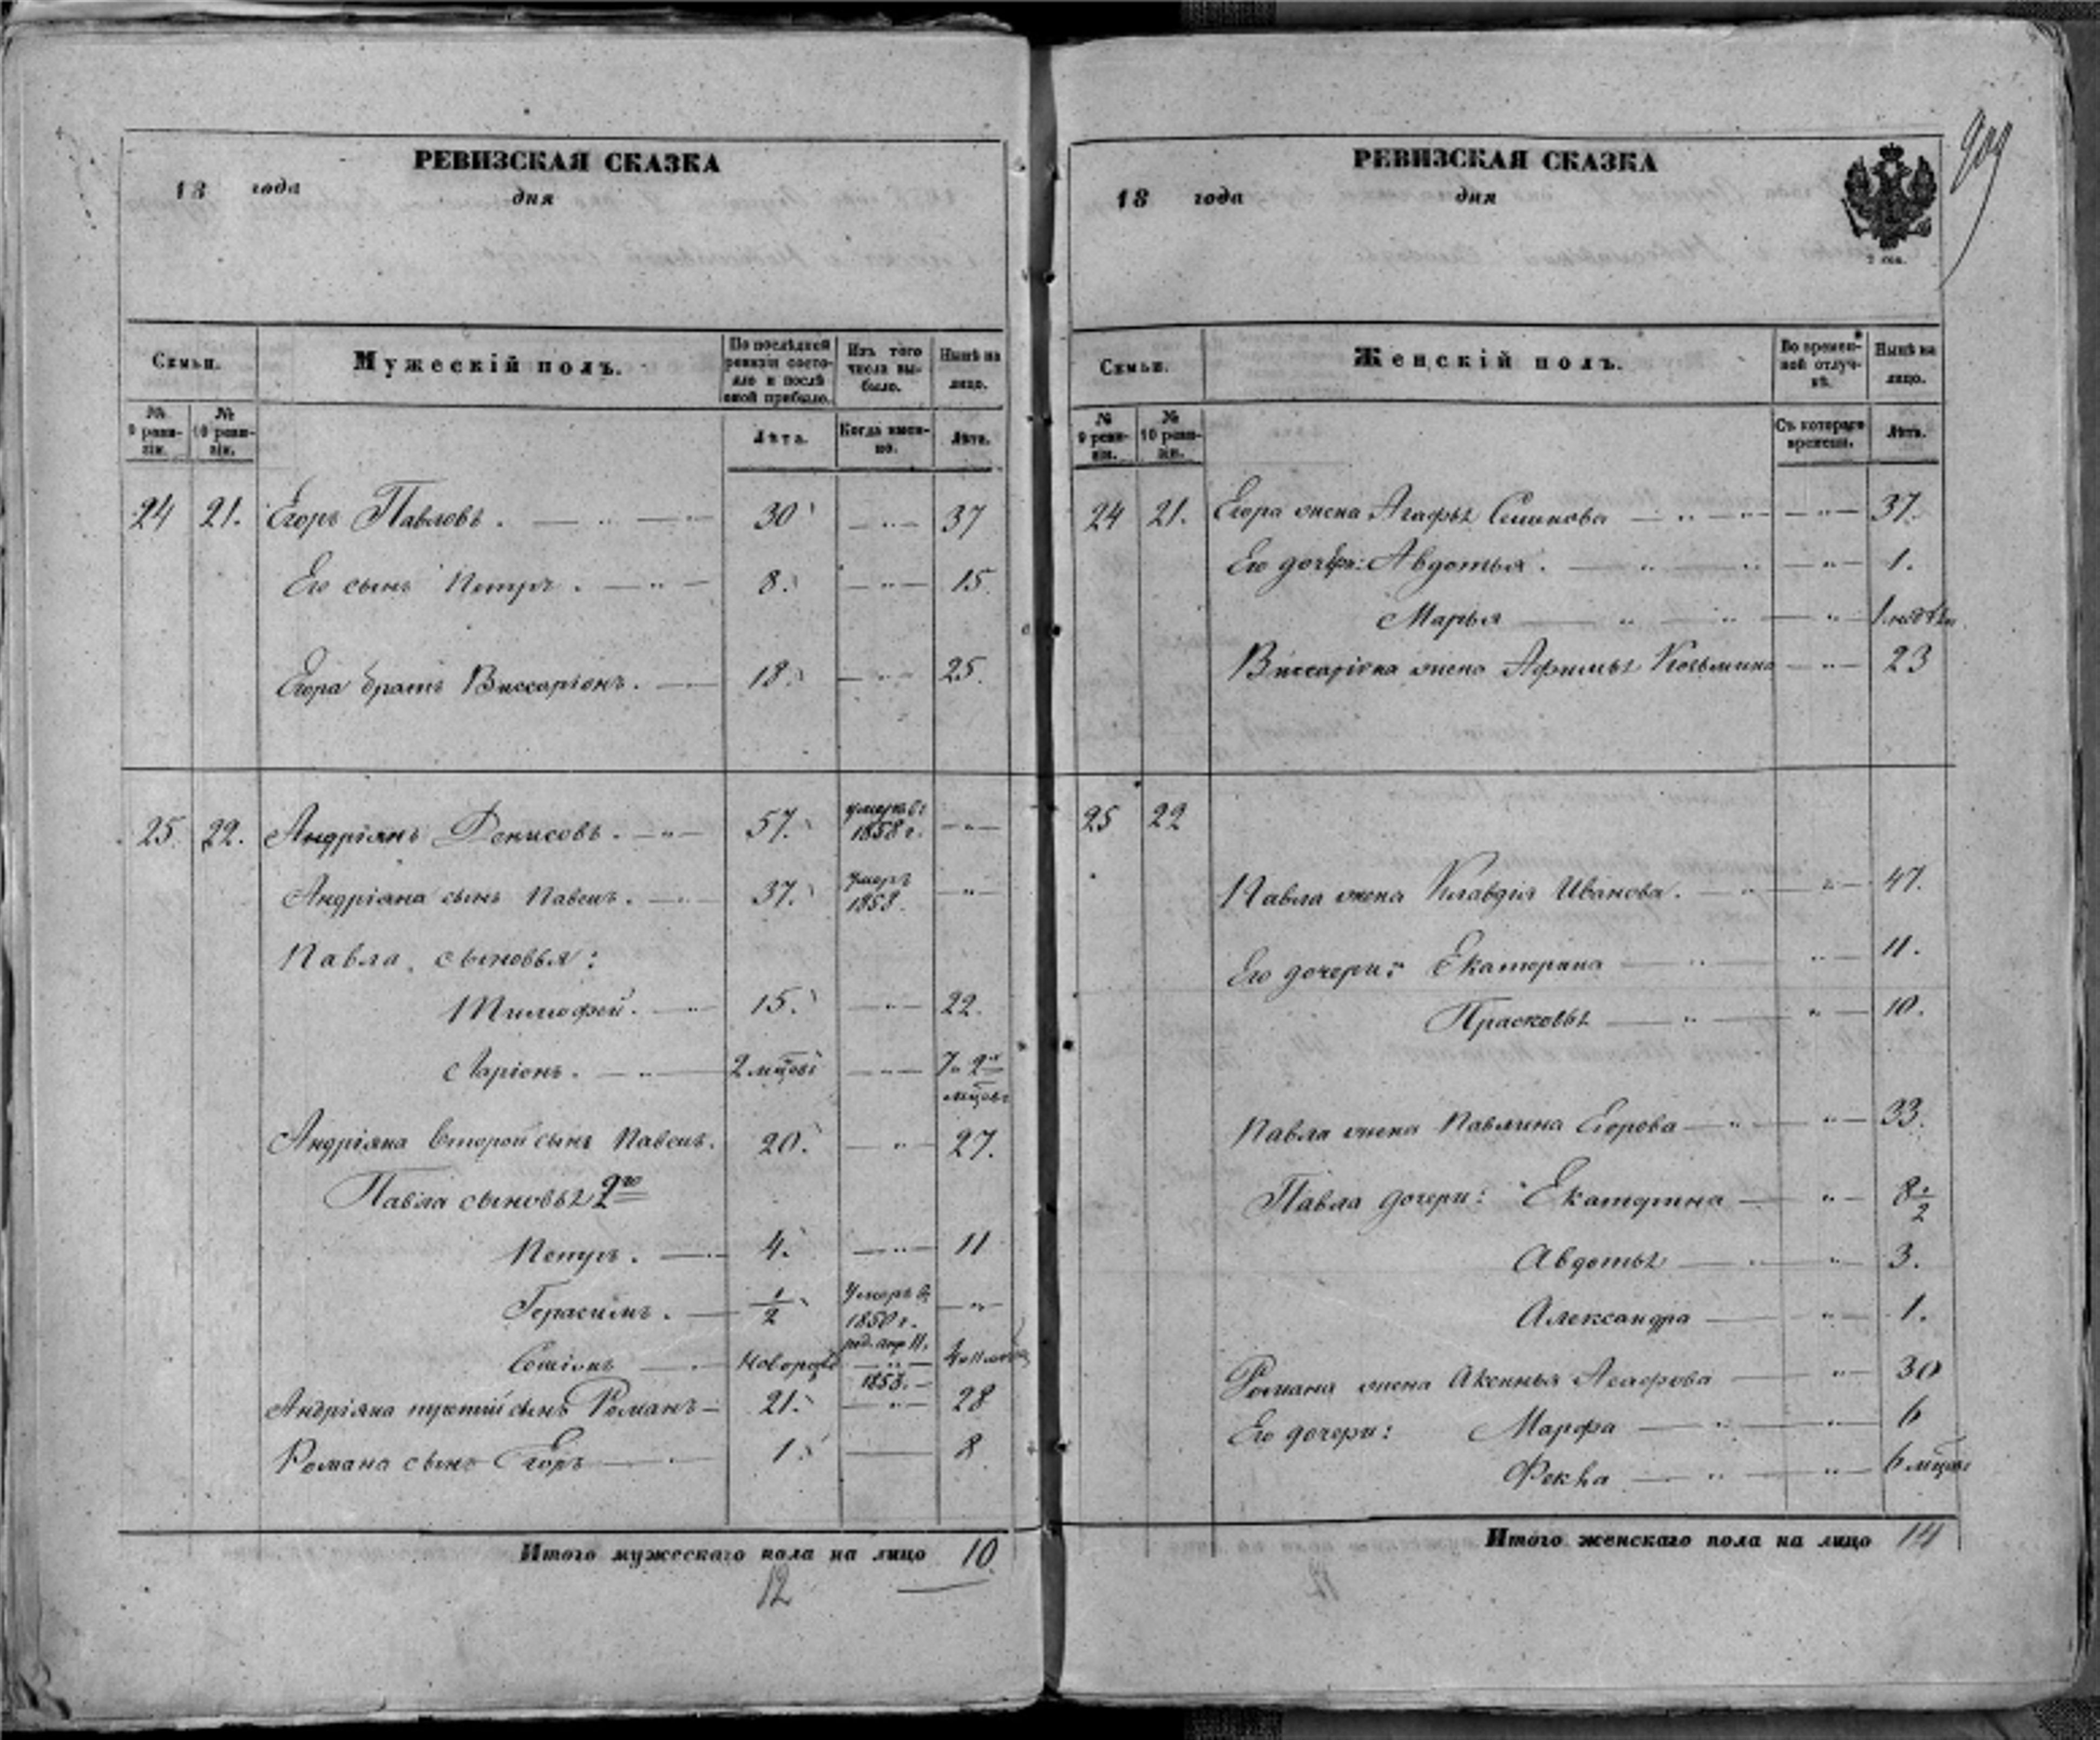 РЕВИЗСКАЯ СКАЗКА
18 года дня
Семьи.
Мужескій полъ.
По послѣдней ревизіи состояло и послѣ оной прибыло.
Изъ того числа выбыло.
Нынѣ на лицо.
№ 9 ревизіи.
№ 10 ревизіи.
Лѣта.
Когда именно.
Лѣта.
24 21. Егоръ Павловъ. 30 37
Его сынъ Петръ. 8. 15.
Егора братъ Виссаріонъ. 18. 25.
25. 22. Андріянъ Денисовъ. 57. умеръ въ 1858 г.
Андріяна сынъ Павелъ. 37. Умеръ 1853.
Павла сыновья:
Тимофей. 15. 22.
Ларіонъ. 2 мцовъ 7 и 2 мцовъ
Андріяна второй сынъ Павелъ. 20. 27.
Павла сыновья 2го
Петръ. 4. 11
Герасимъ. 1/2 Умеръ въ 1850 г.
новорож род. апр 11. 1853. 4 и 11
Андріяна третій сынъ Романъ 21. 28
Романа сынъ Егоръ 1. 8
Итого мужескаго пола на лицо 10.
12
РЕВИЗСКАЯ СКАЗКА
18 года дня
209
Семьи.
Женскій полъ.
Во временной отлучкѣ.
Нынѣ на лицо.
№ 9 ревизіи.
№ 10 ревизіи.
Съ котораго времени.
Лѣта.
24 21. Егора жена Агафья Семенова 37.
Его дочери: Авдотья. 1.
Марья 1 недѣли
Виссаріона жена Афимья Козьмина 23
25 22
Павла жена Клавдія Иванова. 47.
Его дочери: Екатерина 11.
Прасковья 10.
Павла жена Павлина Егорова 33.
Павла дочери: Екатерина 8 1/2
Авдотья 3.
Александра 1.
Романа жена Аксинья 30
Его дочери: Марфа 6
Фекла 6 мцовъ
Итого женскаго пола на лицо 14